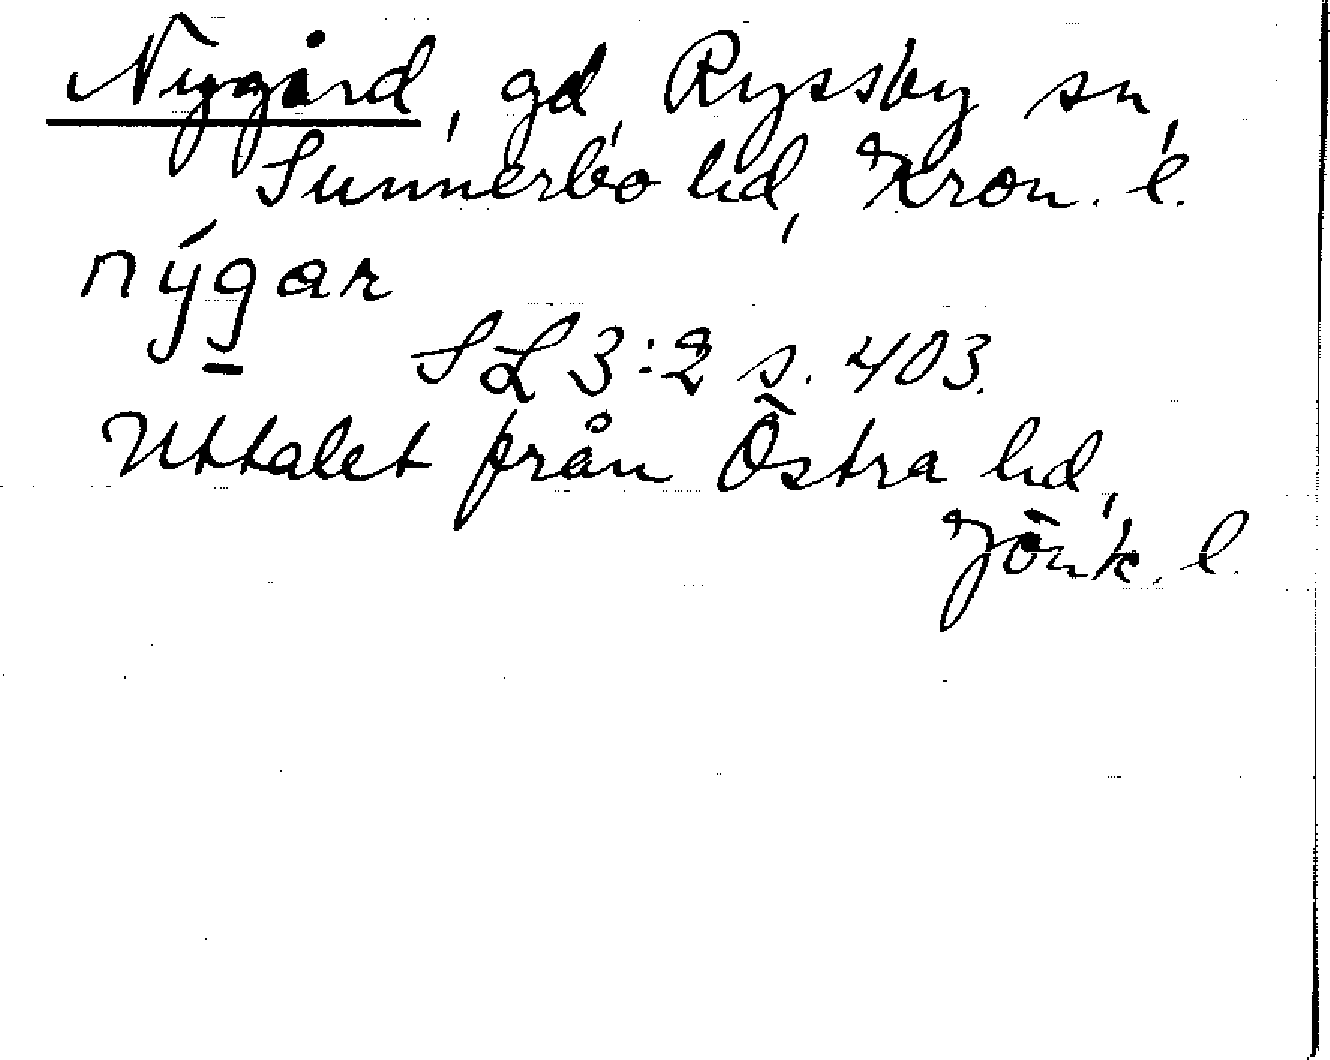 Nygård, gd, Ryssby sn,
Sunnerbo hd, Kron. l.
nýgar
SL 3:2 s. 403.
Uttalet från Östra hd,
Jönk. l.